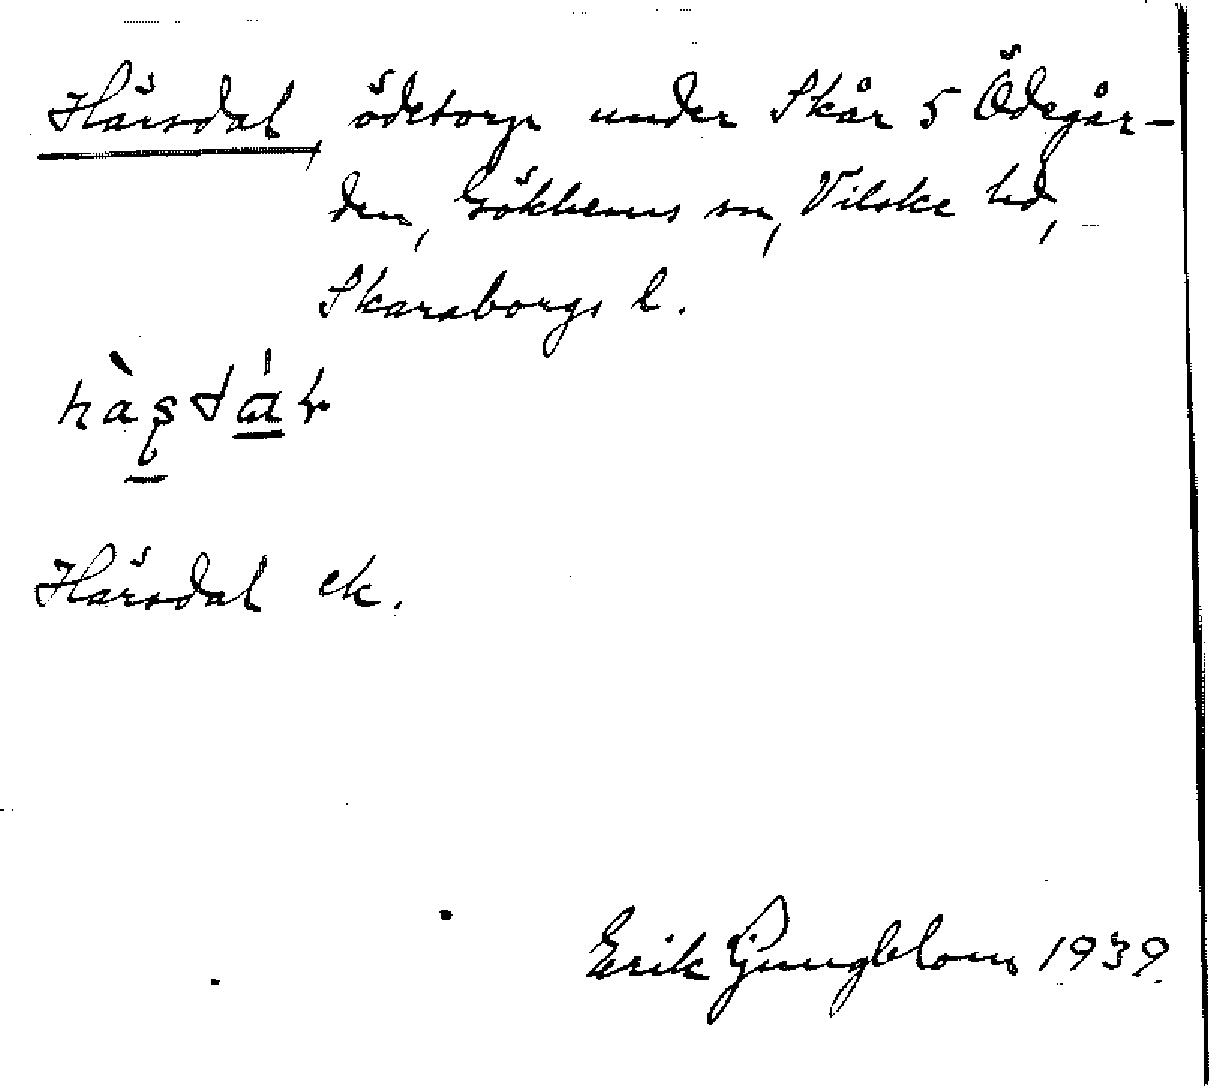 Härsdal, ödetorp under Skår 5 Ödegår-
den, Gökhems sn, Vilske hd,
Skaraborgs l.
Härsdal ek.
Erik Ljungblom 1939